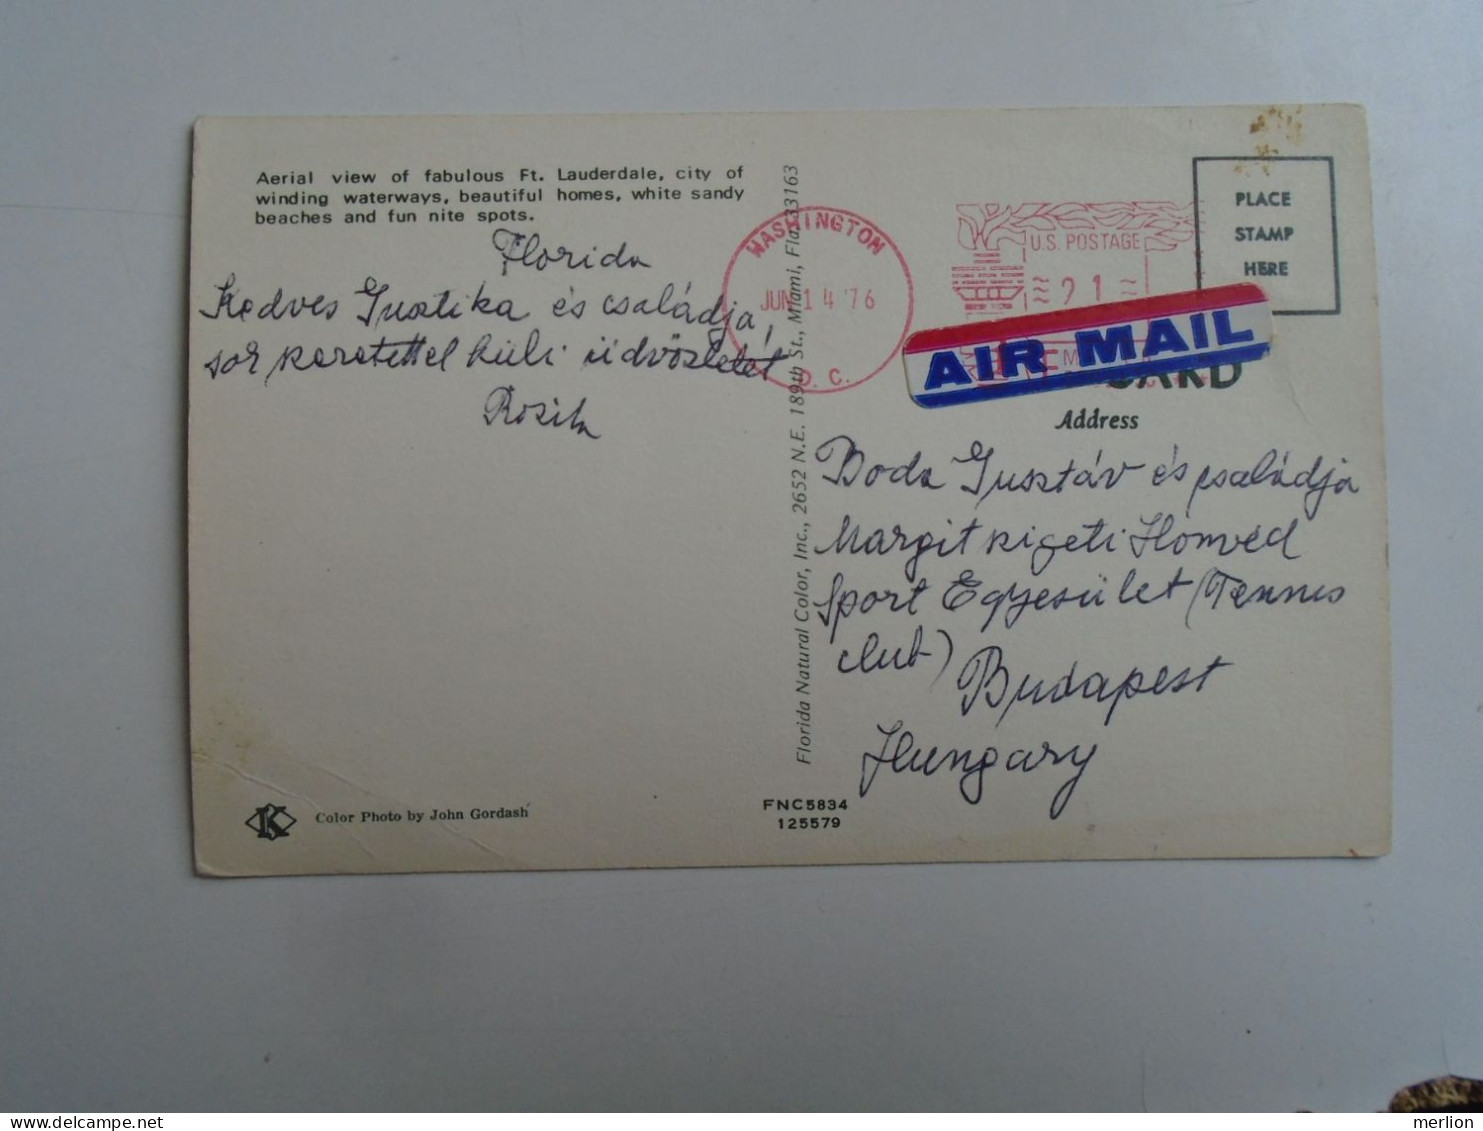 Aerial view of fabulous Ft. Lauderdale, city of
winding waterways, beautiful homes, white sandy
beaches and fun nite spots.
Florida
Kedves Gusztika és családja,
sok szeretettel küli üdvözletét
Rozita
Color Photo by John Gordash
FNC5834
125579
Florida Natural Color, Inc., 2652 N.E. 189th St., Miami, Fla. 33163
WASHINGTON
JUN 14 '76
D. C.
U.S. POSTAGE
21
PLACE
STAMP
HERE
AIR MAIL
CARD
Address
Boda Gusztáv és családja
Margitszigeti Honvéd
Sport Egyesület (Tennis
club)
Budapest
Hungary
merlion